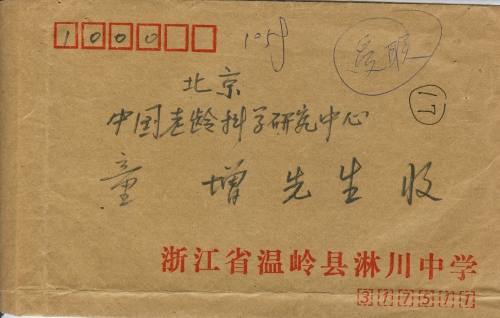 10000 1058
北京
⑰
中国老龄科学研究中心
童 增先生 收
浙江省温岭县淋川中学
317517